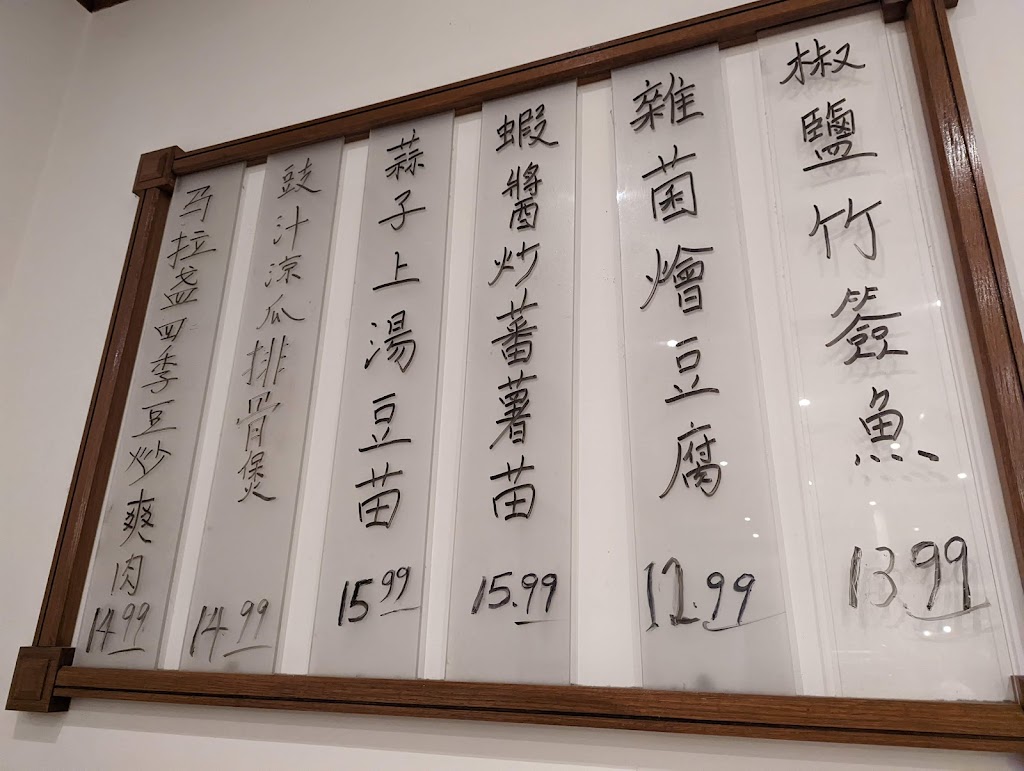 椒鹽竹簽魚
13.99
雜菌燴豆腐
12.99
蝦醬炒蕃薯苗
15.99
蒜子上湯豆苗
15.99
豉汁凉瓜排骨煲
14.99
马拉盏四季豆炒爽肉
14.99